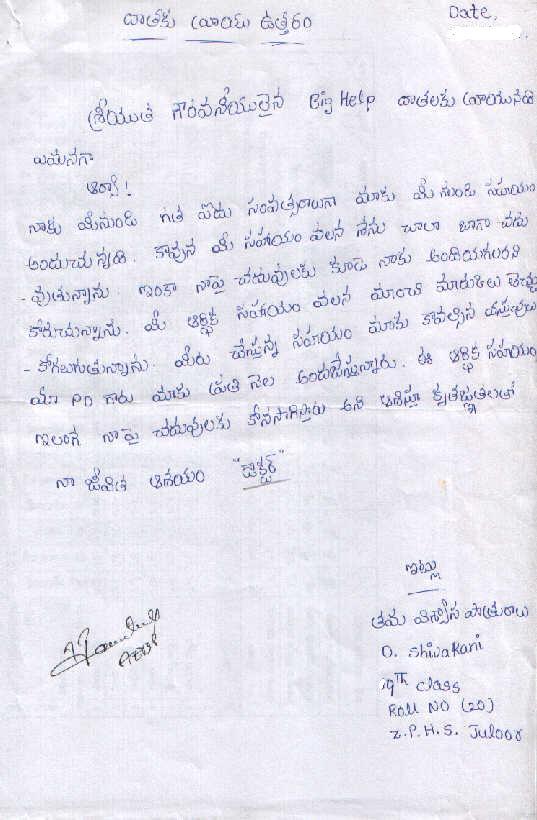 దాతకు వ్రాయు ఉత్తరం
Date,
శ్రీయుత గౌరవనీయులైన Big Help దాతలకు వ్రాయునది
ఏమనగా
ఆర్యా!
నాకు మీనుండి గత ఏడు సంవత్సరాలుగా మాకు మీ నుండి సహాయం
అందుచున్నది. కావున మీ సహాయం వలన నేను చాలా బాగా చదు
- వుతున్నాను. ఇంకా నాపై చదువులకు కూడా నాకు అందియగలరని
కోరుచున్నాను. మీ ఆర్థిక సహాయం వలన మాలాంటి మార్కులు తెచ్చు
- కోగలుగుతున్నాను. మీరు చేస్తున్న సహాయం మాకు కావల్సిన వస్తువులు
మా PD గారు మాకు ప్రతి నెల అందజేస్తున్నారు. ఈ ఆర్థిక సహాయం
ఇలాగే నాపై చదువులకు కొనసాగిస్తారు అని ఆశిస్తూ కృతజ్ఞతలతో
నా జీవిత ఆశయం "డాక్టర్"
ఇట్లు
తమ విశ్వాస పాత్రురాలు
D. Shivakani
9th class
Roll NO (20)
Z.P.H.S. Juloor